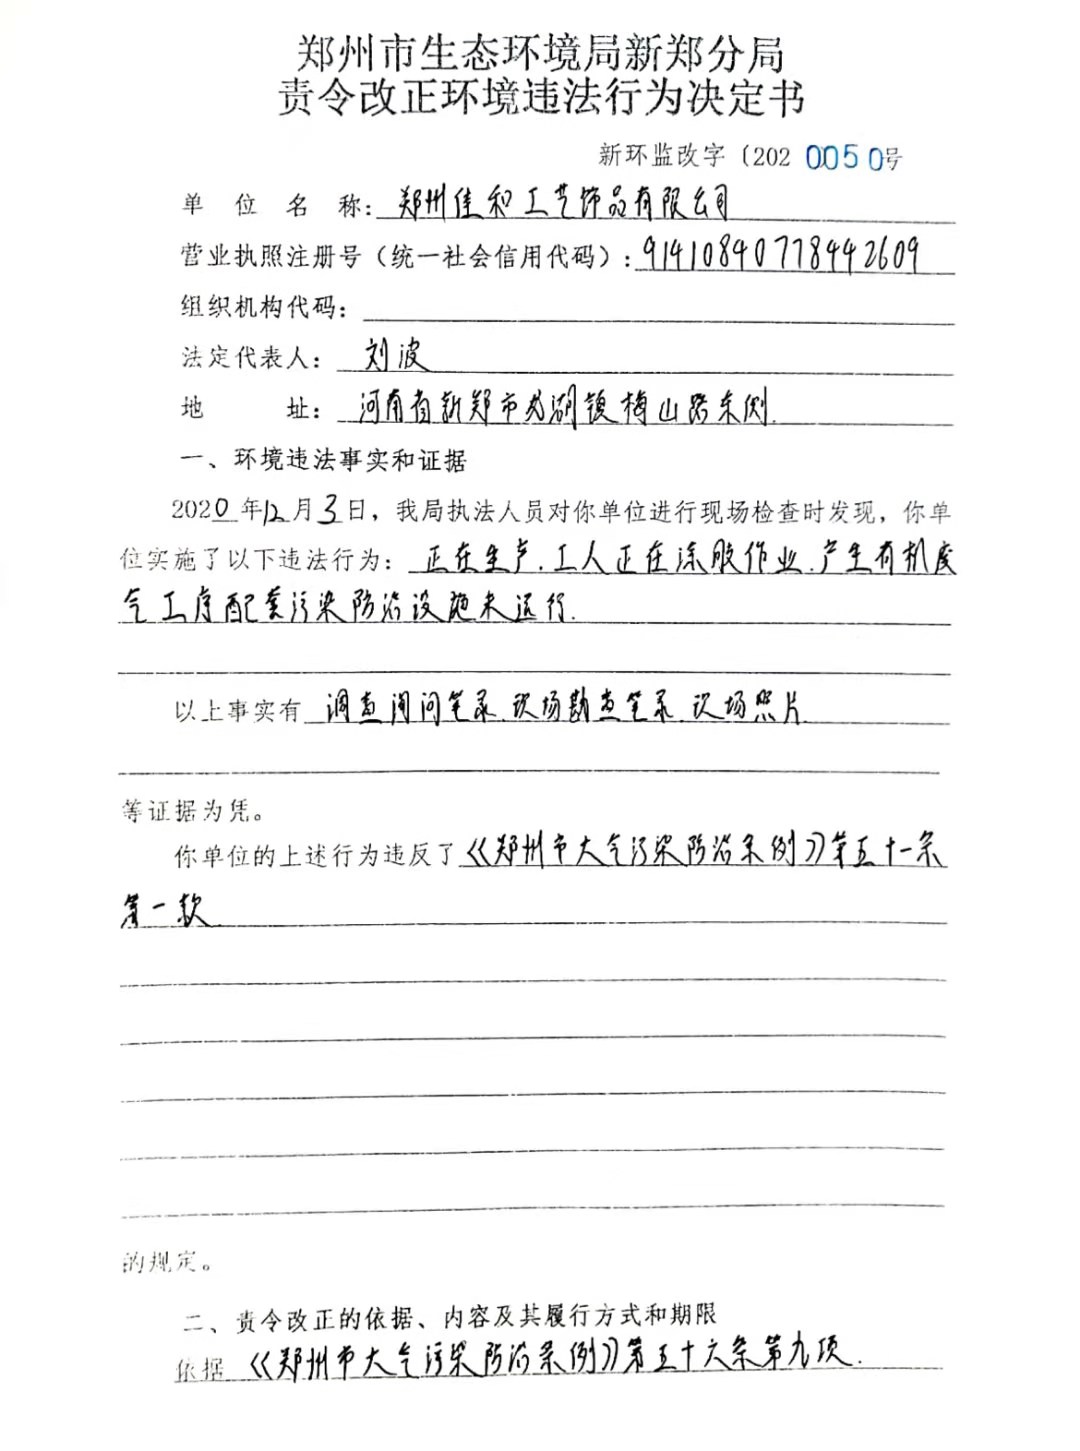 郑州市生态环境局新郑分局
责令改正环境违法行为决定书
新环监改字〔202 0050号
单位名称：郑州佳和工艺饰品有限公司
营业执照注册号（统一社会信用代码）：91410840778442609
组织机构代码：
法定代表人：刘波
地址：河南省新郑市龙湖镇梅山路东侧.
一、环境违法事实和证据
2020年12月3日，我局执法人员对你单位进行现场检查时发现，你单
位实施了以下违法行为：正在生产.工人正在涂胶作业.产生有机废
气工序配套污染防治设施未运行.
以上事实有 调查询问笔录.现场勘查笔录.现场照片
等证据为凭。
你单位的上述行为违反了《郑州市大气污染防治条例》第五十一条
第一款
的规定。
二、责令改正的依据、内容及其履行方式和期限
依据《郑州市大气污染防治条例》第五十六条第九项.